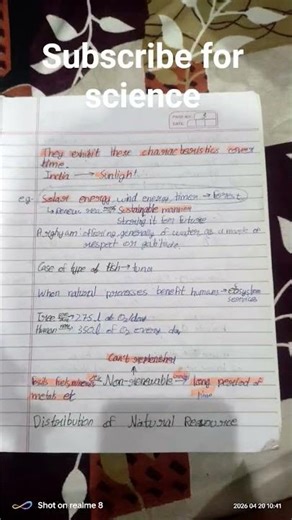 Subscribe for
science
PAGE NO. 3
DATE
They exhibit these characteristics over
time.
India → Sunlight
e.g. Solar energy, wind energy, timber → forest
Sustainable manner
Storing it for future
offering generally of water as a mark of
respect or gratitude
Case of type of fish → tuna
When natural processes benefit humans → ecosystem
services
1 tree 275 l of O2/day
Human 350 l of O2 every day
Can't replenished
Non-renewable → long period of
time
metals etc
Distribution of Natural Resource
Shot on realme 8
2026 04 20 10:41